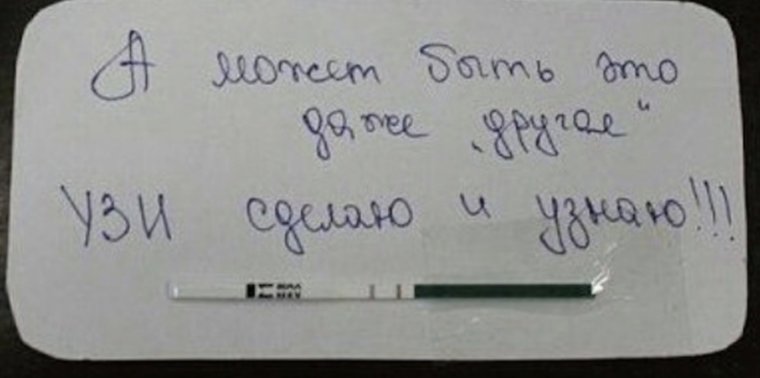 А может быть это
даже „другае“
УЗИ сделаю и узнаю!!!